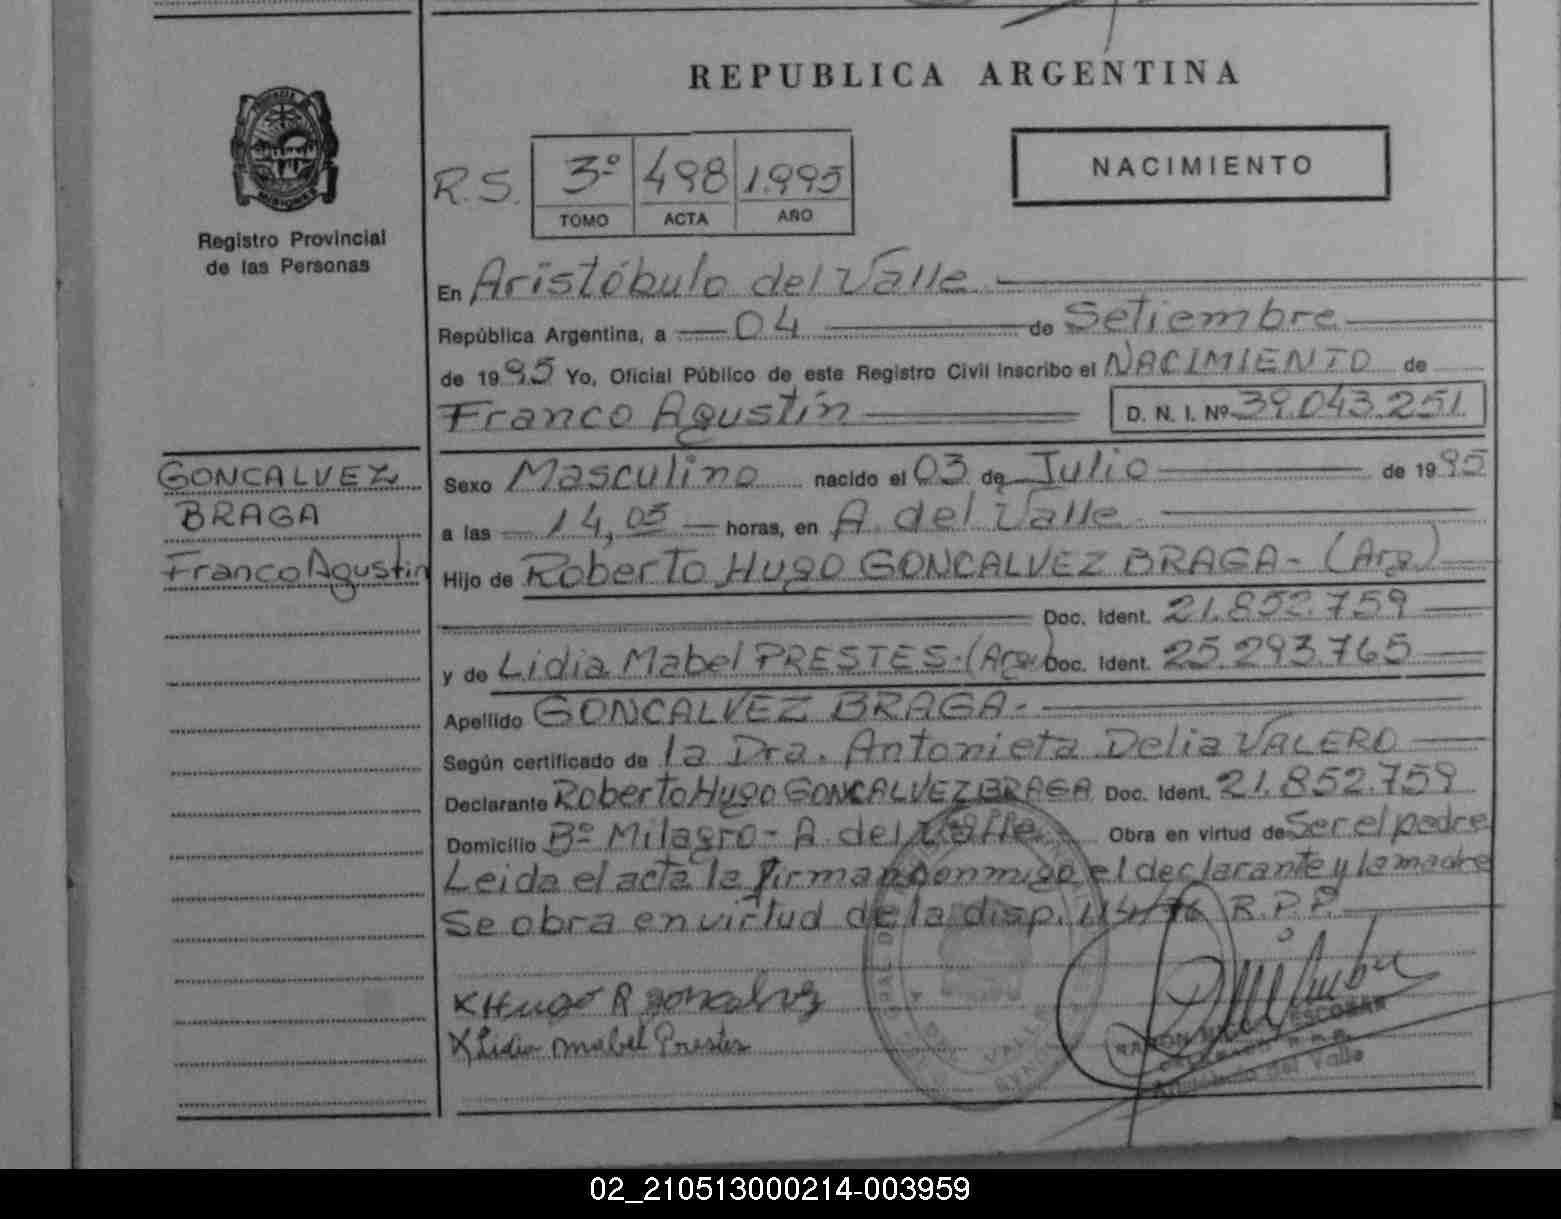 REPUBLICA ARGENTINA
NACIMIENTO
R.S. 3º 498 1.995
TOMO ACTA AÑO
Registro Provincial
de las Personas
En Aristóbulo del Valle
República Argentina, a 04 de Setiembre
de 1995 Yo, Oficial Público de este Registro Civil inscribo el NACIMIENTO de
Franco Agustín D. N. I. Nº 39.043.251
GONCALVEZ
BRAGA
Franco Agustín
Sexo Masculino nacido el 03 de Julio de 1995
a las 14,05 horas, en A. del Valle
Hijo de Roberto Hugo GONCALVEZ BRAGA - (Arg.)
Doc. Ident. 21.852.759
y de Lidia Mabel PRESTES - (Arg.) Doc. Ident. 25.293.765
Apellido GONCALVEZ BRAGA -
Según certificado de la Dra. Antonieta Delia VALERO
Declarante Roberto Hugo GONCALVEZ BRAGA Doc. Ident. 21.852.759
Domicilio Bº Milagro - A. del Valle Obra en virtud de Ser el padre
Leida el acta la firman conmigo el declarante y la madre
Se obra en virtud de la disp. 114/76 R.P.P.
X Hugo R goncalvez
X Lidia mabel Prestes
RAMON ESCOBAR
Aristóbulo del Valle
02_210513000214-003959